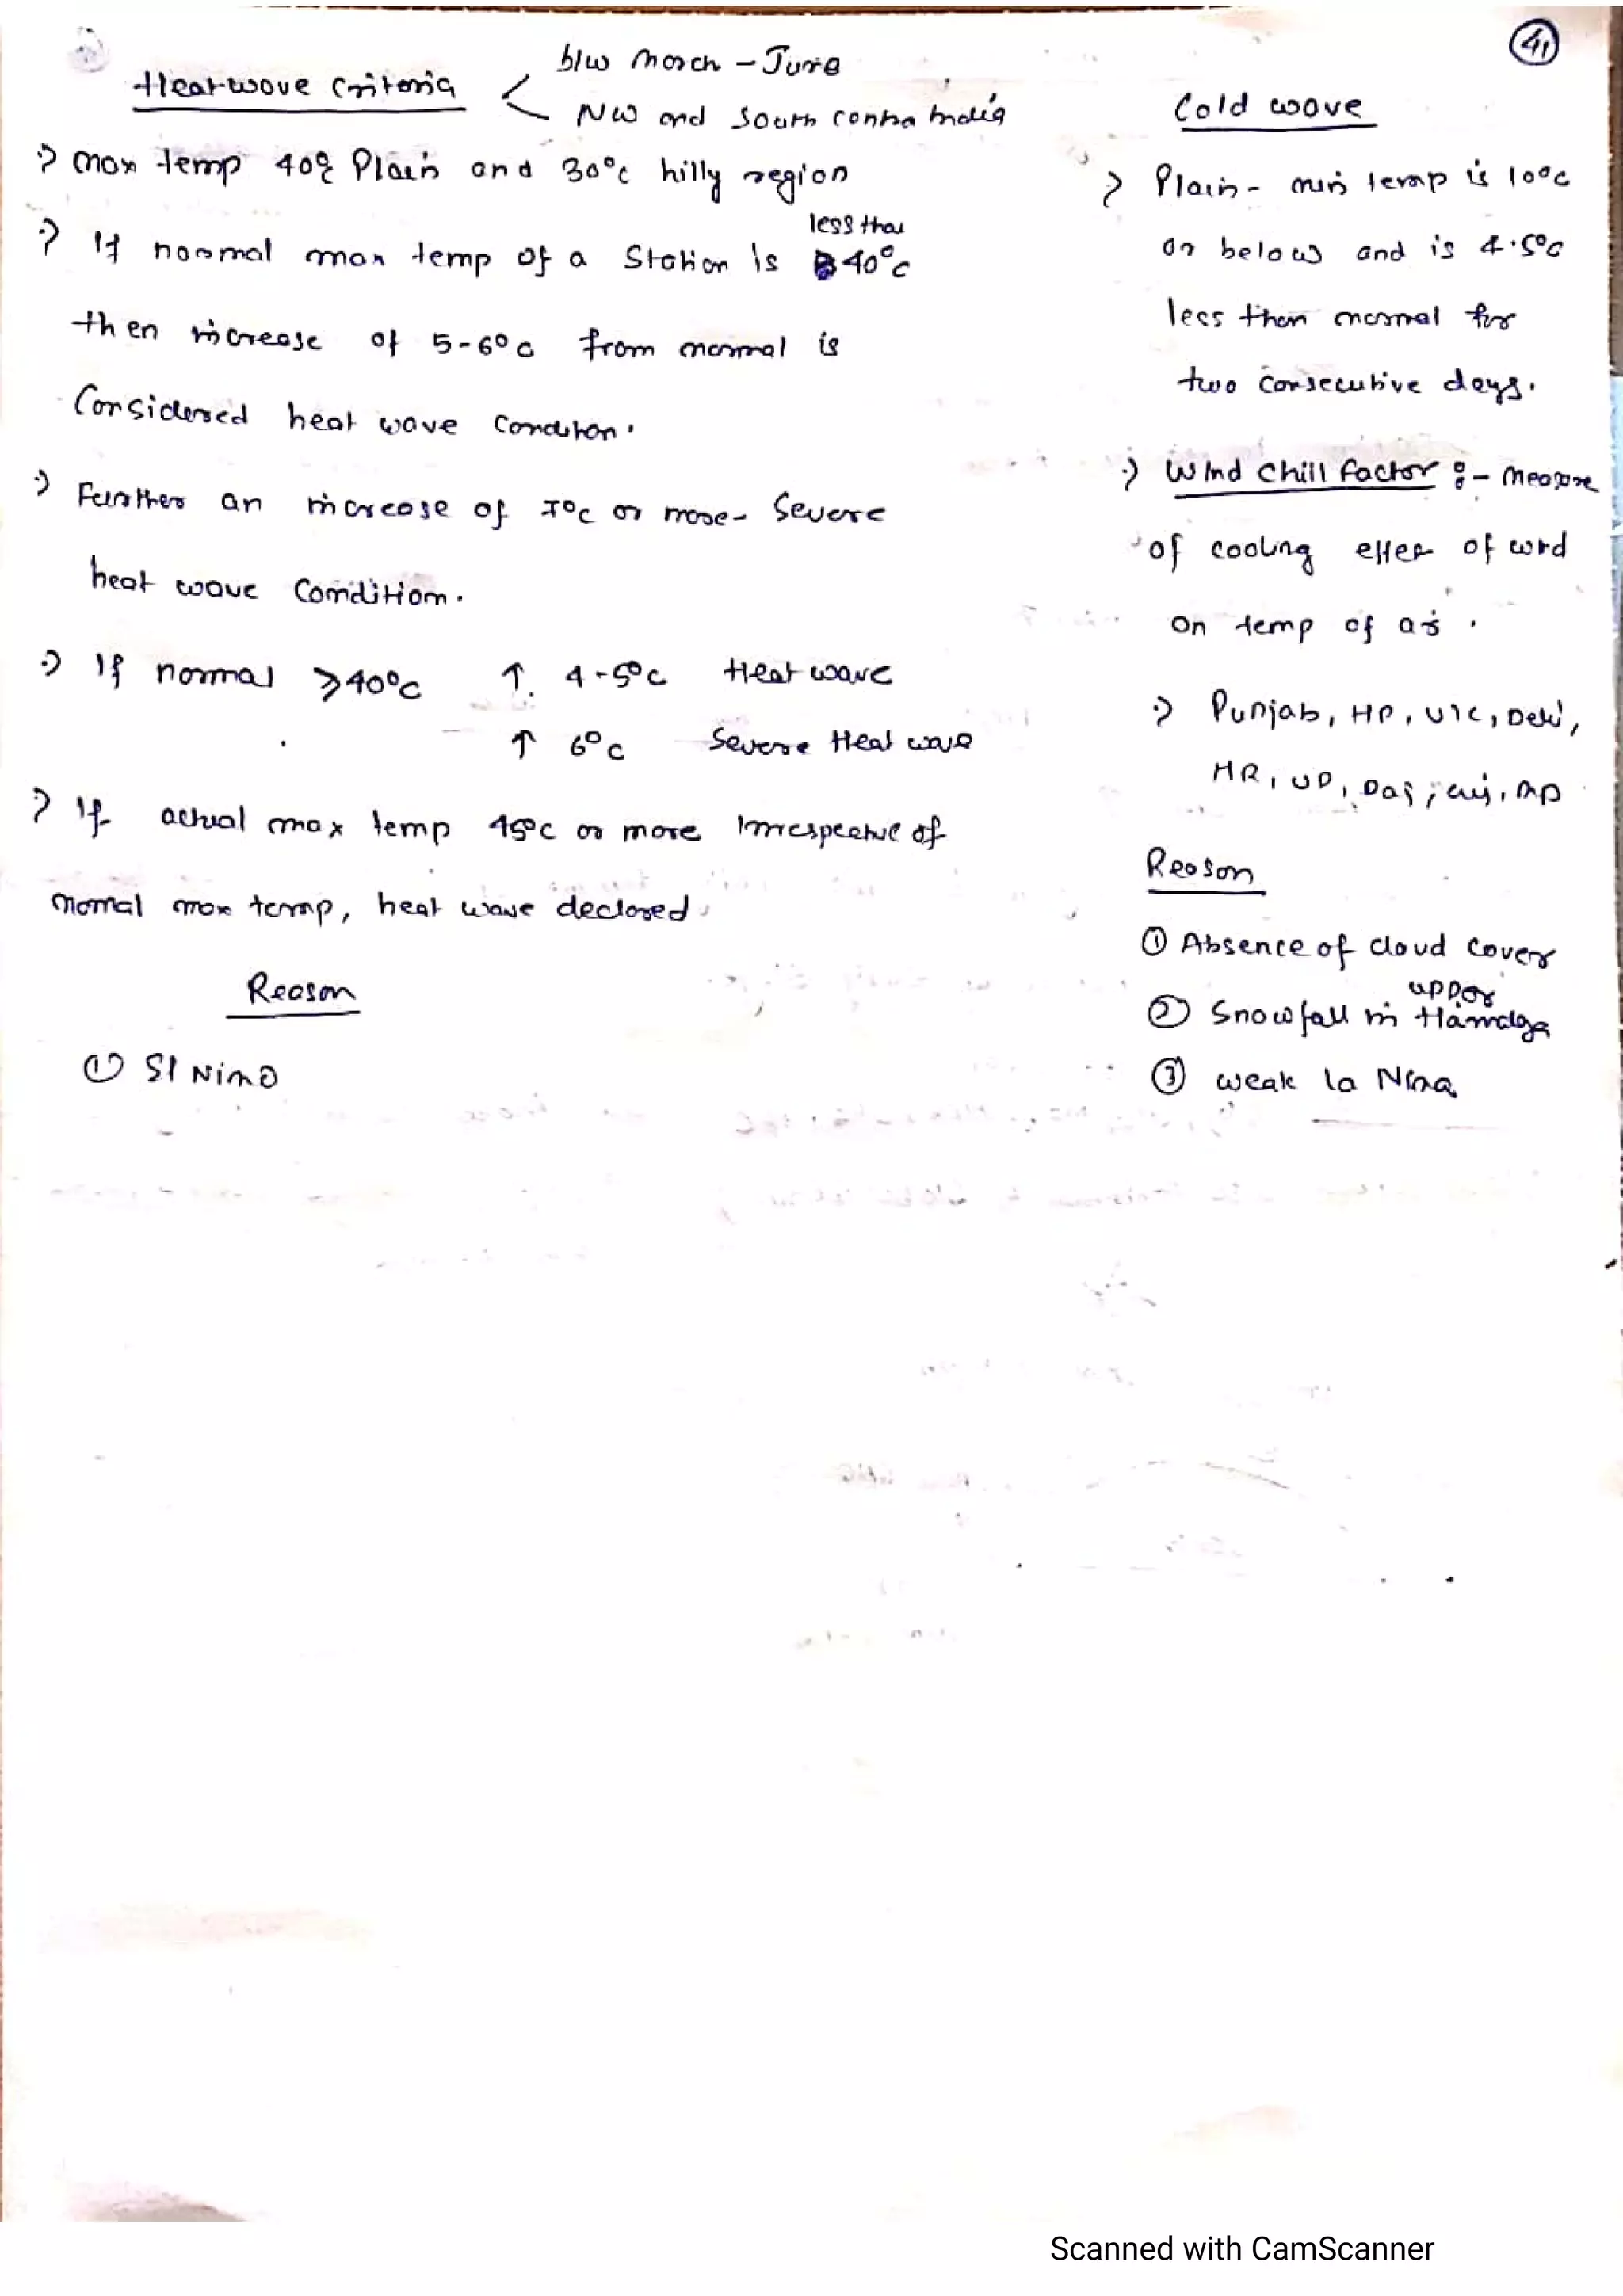 41
Heat wave Criteria
b/w March - June
NW and South Central India
Max temp 40°C Plain and 30°C hilly region
less than
If normal max temp of a Station is 40°C
then increase of 5-6°C from normal is
Considered heat wave Condition.
Further an increase of 7°C or more - Severe
heat wave Condition.
If normal ≥40°C ↑ 4-5°C Heat wave
↑ 6°C Severe Heat wave
If actual max temp 45°C or more Irrespective of
normal max temp, heat wave declared
Reason
① El Nino
Cold wave
Plain - min temp is 10°C
or below and is 4.5°C
less then normal for
two Consecutive days.
Wind Chill Factor :- Measure
of cooling effect of wind
on temp of air.
Punjab, HP, UK, Delhi,
HR, UP, Raj, Guj, MP
Reason
① Absence of cloud cover
upper
② Snowfall in Himalaya
③ weak la Nina
Scanned with CamScanner